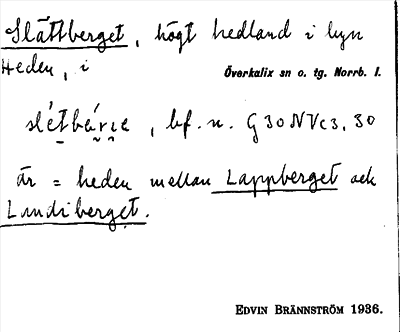 Slättberget, högt hedland i byn
Heden, i Överkalix sn o. tg. Norrb. l.
slétbärɩe, bf. n. G 30 NV c 3, 30
är = heden mellan Lappberget och
Lundiberget.
EDVIN BRÄNNSTRÖM 1936.